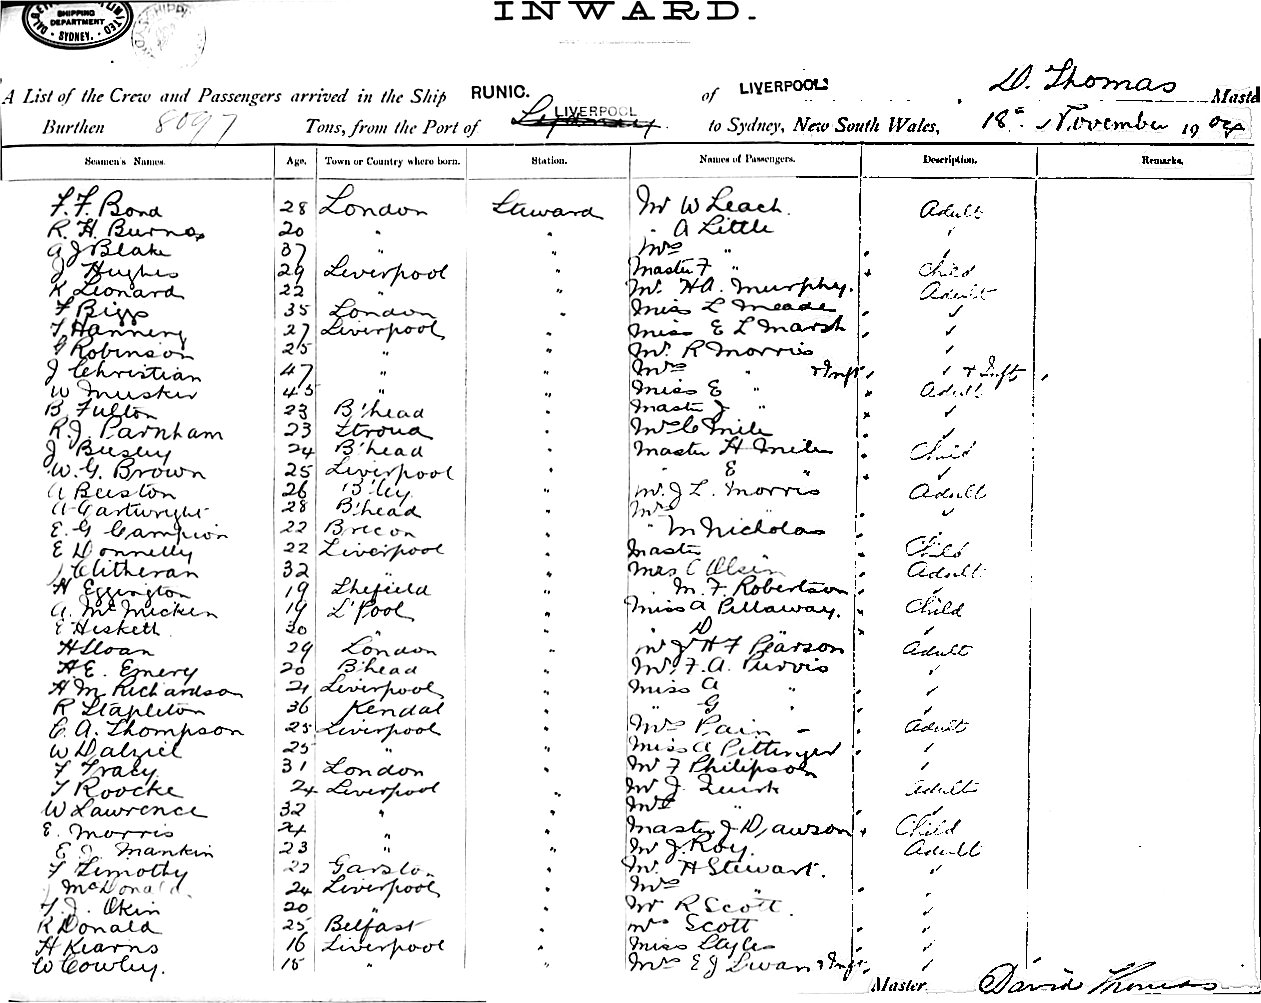 INWARD.
SHIPPING
DEPARTMENT
SYDNEY.
A List of the Crew and Passengers arrived in the Ship RUNIC. of LIVERPOOL D. Thomas Master
Burthen 8097 Tons, from the Port of LIVERPOOL to Sydney, New South Wales, 18 November 1904
Seamen's Names. Age. Town or Country where born. Station. Names of Passengers. Description. Remarks.
F. F. Bond 28 London Steward Mr W Leach. Adult
R. H. Burnas 20 " " " A Little ✓
A J Blake 37 " " Mrs " ✓
J Hughes 29 Liverpool " Master F " Child
K Leonard 22 " " Mr. HA. Murphy. Adult
F Biggs 35 London " Miss L Meade ✓
T Hannery 27 Liverpool " Miss E L Marsh ✓
G Robinson 25 " " Mr. R Morris ✓
J Christian 47 " " Mrs " + Inft ✓ + Inft
W Musker 45 " " Miss E " Adult
B. Fulton 23 B'head " Master J " ✓
R. J. Parnham 23 Stroud " Mrs C Mile ✓
J Busby 24 B'head " Master H Mile Child
W. G. Brown 25 Liverpool " " E " ✓
A Beeston 26 B'ley " Mr. J L. Morris Adult
A Cartwright 28 B'head " Mrs " ✓
E. G Campion 22 Brecon " " M Nicholas ✓
E Donnelly 22 Liverpool " Master Child
J Clitheran 32 " " Mrs C Olsen Adult
H Eggington 19 Shefield " " M. F. Robertson ✓
A. McMicken 19 L'Pool " Miss A Pillaway. Child
E Heskett 30 " " " D " ✓
H Sloan 29 London " Mr J H F Pearson Adult
H E. Emery 20 B'head " Mr. F. A. Purvis ✓
H M Richardson 21 Liverpool " Miss A " ✓
R Stapleton 36 Kendal " " G " ✓
C. A. Thompson 25 Liverpool " Mrs Pain Adult
W Dalziel 25 " " Miss A Pittinger ✓
F Tracy. 31 London " Mr F Philipson ✓
T Roocke 24 Liverpool " Mr J. Quirk Adult
W Lawrence 32 " " Mrs " ✓
E. Morris 24 " " Master J Dawson Child
E J. Mankin 23 " " Mr J. Roy. Adult
F Timothy 22 Garston " Mr. H Stewart. ✓
J McDonald 24 Liverpool " Mrs " ✓
J. Okin 20 " " Mr R Scott ✓
K Donald 25 Belfast " Mrs Scott ✓
H Kearns 16 Liverpool " Miss Styles ✓
W Cowley. 15 " " Mrs E J Swan + Inft ✓
Master. David Thomas